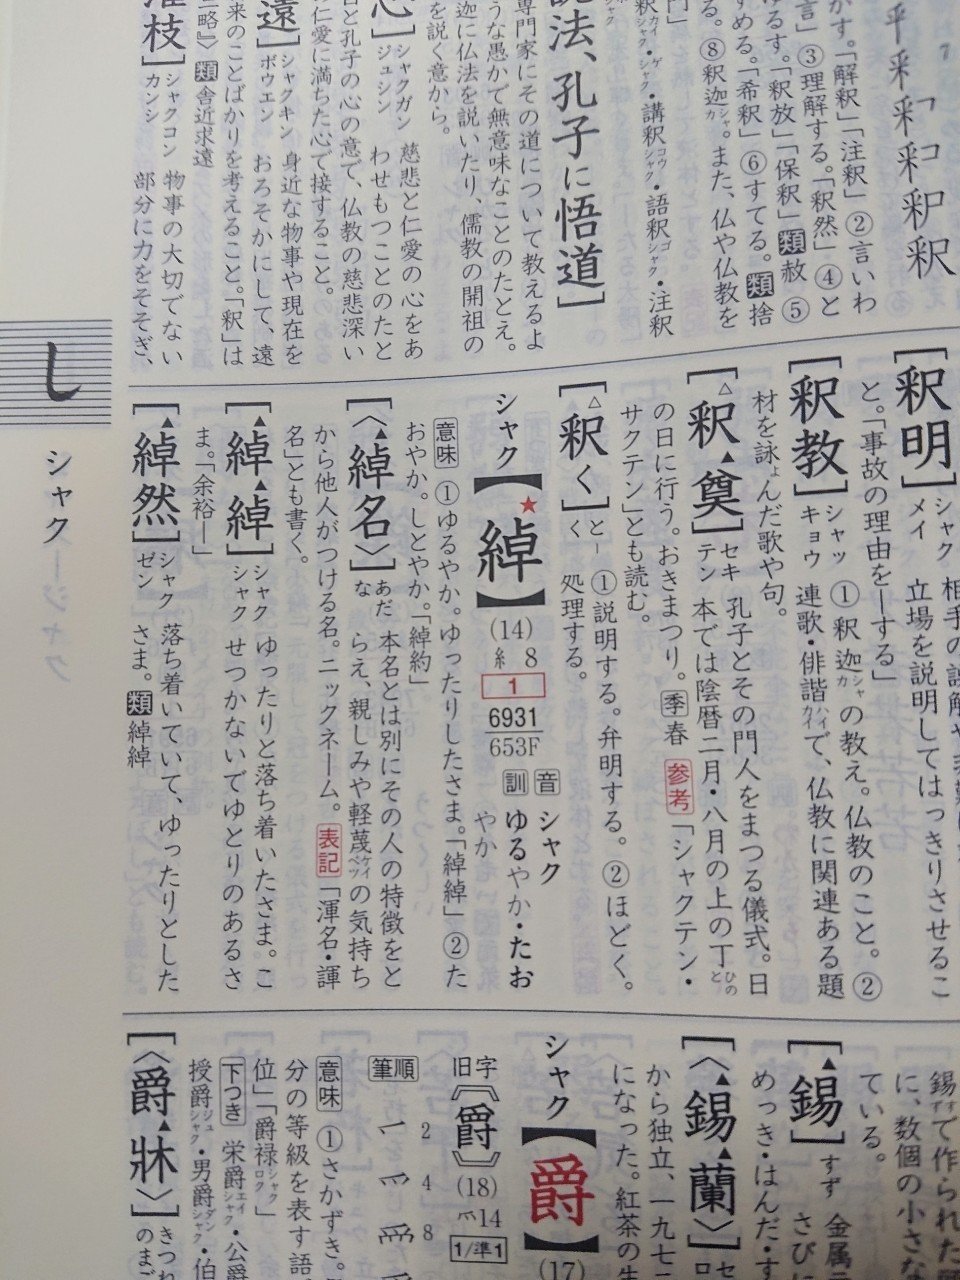 釈釈
がす。「解釈」「注釈」②言いわ
③理解する。「釈然」④と
ゆるす。「釈放」「保釈」類赦 ⑤
すめる。「希釈」⑥すてる。類捨
る。⑧釈迦シャカ。また、仏や仏教を
講釈コウシャク・語釈ゴシャク・注釈
説法、孔子に悟道]
専門家にその道について教えるよ
うな愚かで無意味なことのたとえ。
迦に仏法を説いたり、儒教の開祖の
を説く意から。
心]シャクガンジュシン 慈悲と仁愛の心をあ
わせもつことのたと
と孔子の心の意で、仏教の慈悲深い
の仁愛に満ちた心で接すること。
遠]シャクキンボウエン 身近な物事や現在を
おろそかにして、遠
来のことばかりを考えること。「釈」は
三略』類舎近求遠
灌枝]シャクコンカンシ 物事の大切でない
部分に力をそそぎ、
し
シャク―ジャク
[釈明]シャクメイ
立場を説明してはっきりさせるこ
と。「事故の理由を―する」
[釈教]シャッキョウ ①釈迦シャカの教え。仏教のこと。②
連歌・俳諧ハイカイで、仏教に関連ある題
材を詠よんだ歌や句。
[△釈▲奠]セキテン 孔子とその門人をまつる儀式。日
本では陰暦二月・八月の上の丁ひのと
の日に行う。おきまつり。季春 参考「シャクテン・
サクテン」とも読む。
[△釈く]と-く ①説明する。弁明する。②ほどく。
処理する。
シャク【★綽】(14)糸8 1 6931 653F 音シャク 訓ゆるやか・たお
やか
意味 ①ゆるやか。ゆったりしたさま。「綽綽」②た
おやか。しとやか。「綽約」
[〈▲綽名〉]あだな 本名とは別にその人の特徴をと
らえ、親しみや軽蔑ケイベツの気持ち
から他人がつける名。ニックネーム。表記「渾名・諢
名」とも書く。
[▲綽▲綽]シャクシャク ゆったりと落ち着いたさま。こ
せつかないでゆとりのあるさ
ま。「余裕―」
[▲綽然]シャクゼン 落ち着いていて、ゆったりとした
さま。類綽綽
錫すずで作られた
に、数個の小さな
ている。
[▲錫]すず 金属元
めっき・はんだ・す
[〈▲錫▲蘭〉]セ
から独立、一九七二
になった。紅茶の生
シャク【爵】(17)
旧字〖爵〗(18)爫14 1/準1
筆順 2 4 8
意味 ①さかずき。
分の等級を表す語
位」「爵禄シャクロク」
下つき 栄爵エイシャク・公爵
授爵ジュシャク・男爵ダンシャク・伯
[〈爵▲牀〉]きつね
のまご